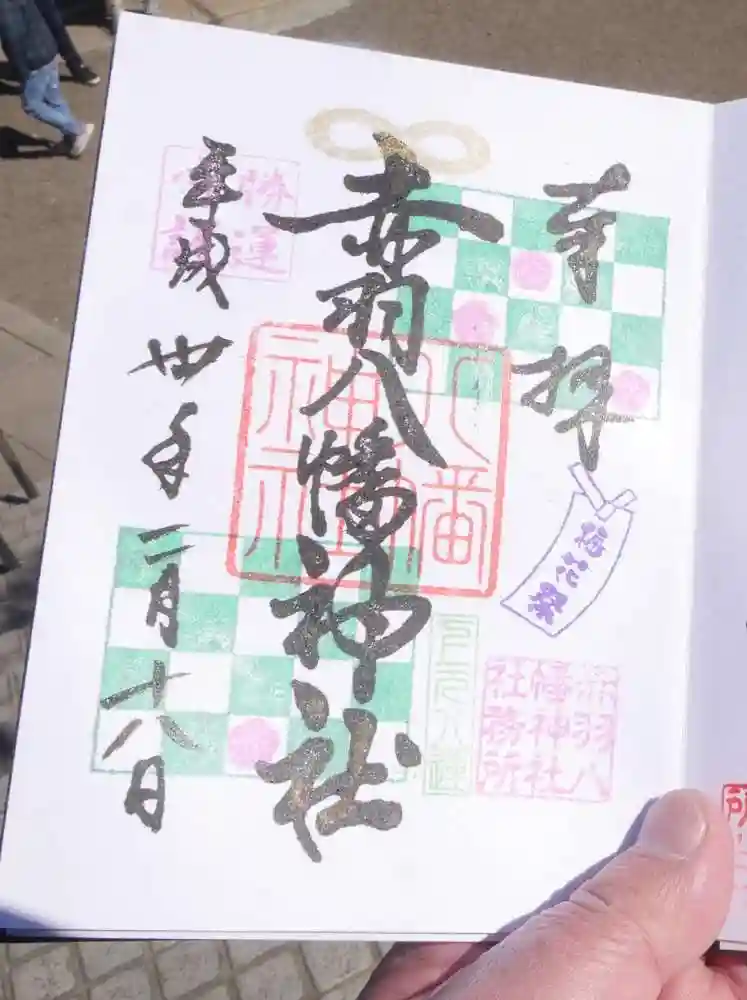 奉拝
梅花祭
赤羽八
幡神社
社務所
赤羽八幡神社
八幡
神社
勝運
平成丗年二月十八日